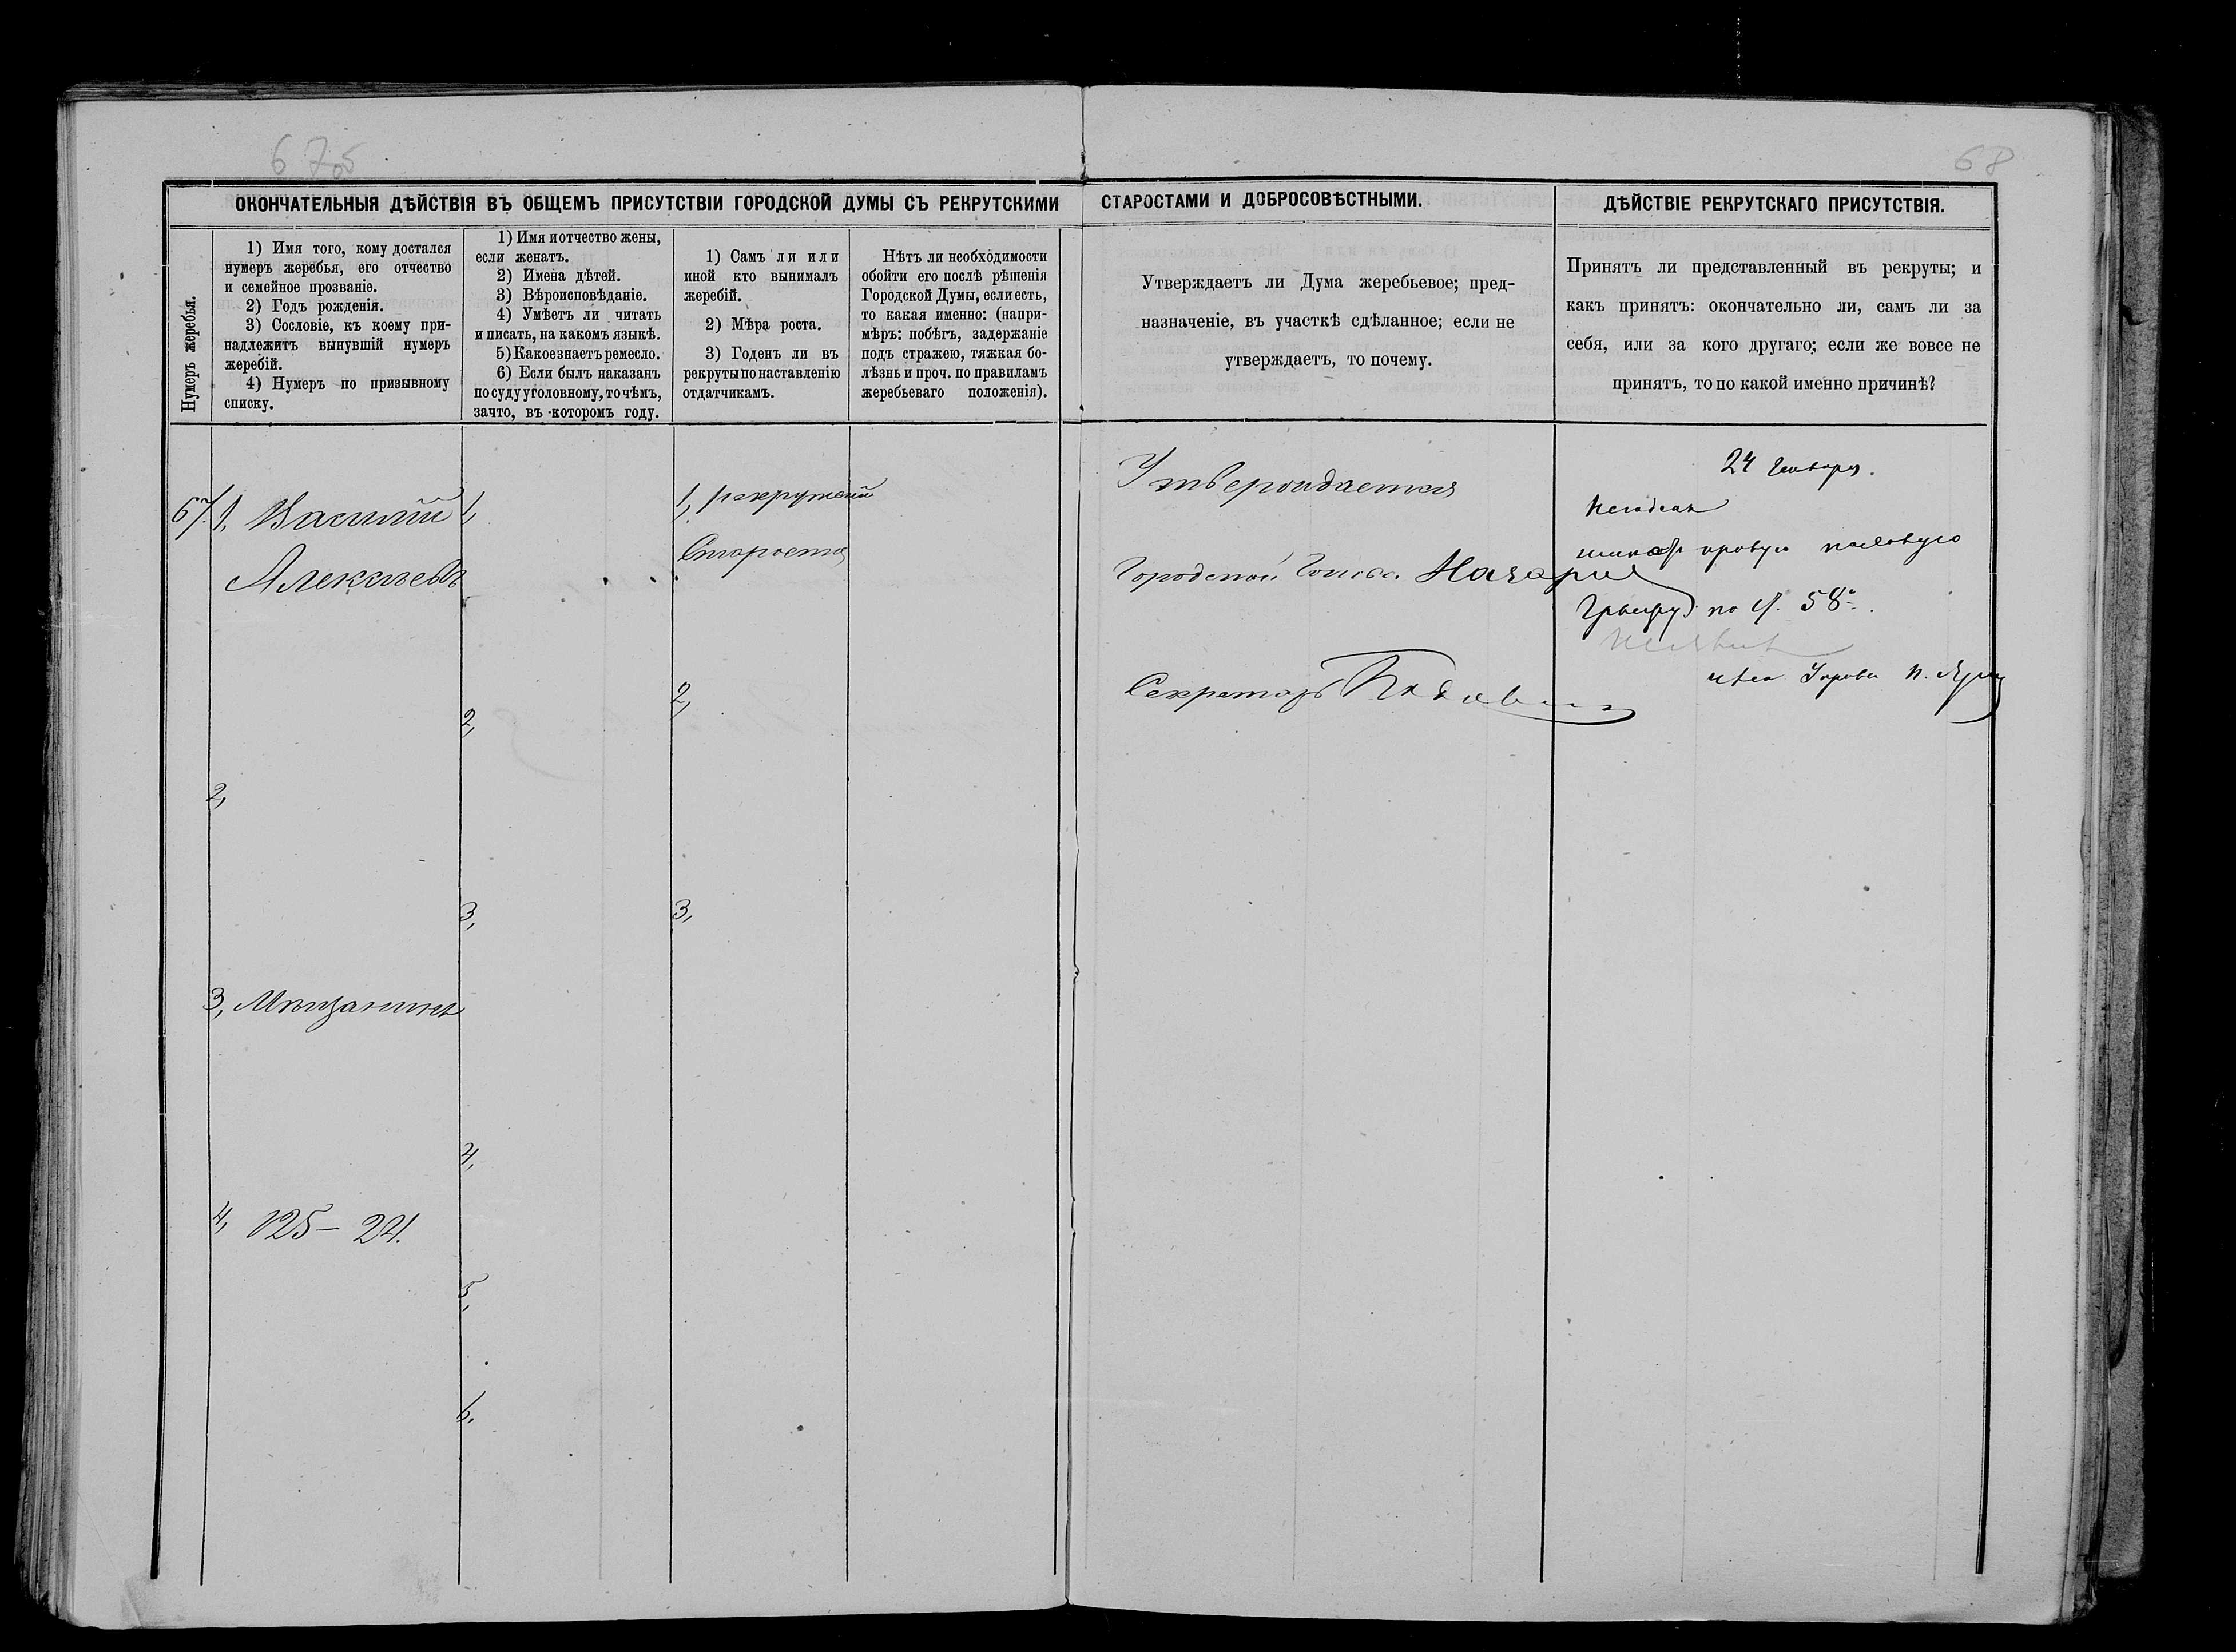 67об
68
ОКОНЧАТЕЛЬНЫЯ ДѢЙСТВІЯ ВЪ ОБЩЕМЪ ПРИСУТСТВІИ ГОРОДСКОЙ ДУМЫ СЪ РЕКРУТСКИМИ СТАРОСТАМИ И ДОБРОСОВѢСТНЫМИ.
ДѢЙСТВІЕ РЕКРУТСКАГО ПРИСУТСТВІЯ.
Нумеръ жеребья.
1) Имя того, кому достался
нумеръ жеребья, его отчество
и семейное прозваніе.
2) Годъ рожденія.
3) Сословіе, къ коему при-
надлежитъ вынувшій нумеръ
жеребій.
4) Нумеръ по призывному
списку.
1) Имя и отчество жены,
если женатъ.
2) Имена дѣтей.
3) Вѣроисповѣданіе.
4) Умѣетъ ли читать
и писать, на какомъ языкѣ.
5) Какое знаетъ ремесло.
6) Если былъ наказанъ
по суду уголовному, то чѣмъ,
за что, въ которомъ году.
1) Самъ ли или
иной кто вынималъ
жеребій.
2) Мѣра роста.
3) Годенъ ли въ
рекруты по наставленію
отдатчикамъ.
Нѣтъ ли необходимости
обойти его послѣ рѣшенія
Городской Думы, если есть,
то какая именно: (напри-
мѣръ: побѣгъ, задержаніе
подъ стражею, тяжкая бо-
лѣзнь и проч. по правиламъ
жеребьеваго положенія).
Утверждаетъ ли Дума жеребьевое; пред-
назначеніе, въ участкѣ сдѣланное; если не
утверждаетъ, то почему.
Принятъ ли представленный въ рекруты; и
какъ принятъ: окончательно ли, самъ ли за
себя, или за кого другаго; если же вовсе не
принятъ, то по какой именно причинѣ?
67. 1, Василій
Алексѣевъ
2,
3, Мѣщанинъ
4, 125 – 24.
1,
2,
3,
4,
5,
6.
1, рекрутскій
Староста
2,
3,
Утверждается
Городской Голова
Секретарь
24 Января.
Негоденъ
паховую
Грыжу по 58